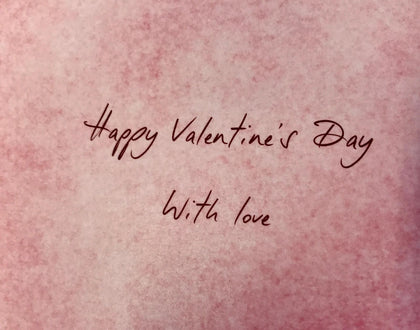 Happy Valentine's Day
With love